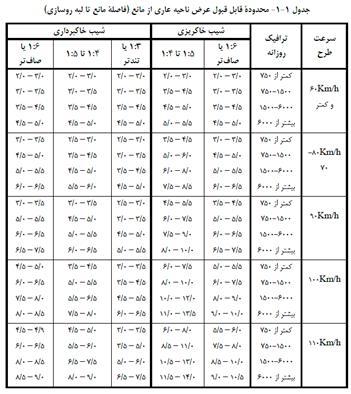 جدول ۱-۱- محدودهٔ قابل قبول عرض ناحیه عاری از مانع (فاصلهٔ مانع تا لبه روسازی)
سرعت طرح ترافیک روزانه شیب خاکریزی شیب خاکبرداری
۱:۶ یا صاف‌تر ۱:۵ تا ۱:۴ ۱:۳ یا تندتر ۱:۴ تا ۱:۵ ۱:۶ یا صاف‌تر
۶۰Km/h و کمتر
کمتر از ۷۵۰ ۲/۰ – ۳/۰ ۲/۰ – ۳/۰ ۲/۰ – ۳/۰ ۲/۰ – ۳/۰ ۲/۰ – ۳/۰
۷۵۰-۱۵۰۰ ۳/۰ – ۳/۵ ۳/۵ – ۴/۵ ۳/۰ – ۳/۵ ۳/۰ – ۳/۵ ۳/۰ – ۳/۵
۱۵۰۰-۶۰۰۰ ۳/۵ – ۴/۵ ۴/۵ – ۵/۰ ۳/۵ – ۴/۵ ۳/۵ – ۴/۵ ۳/۵ – ۴/۵
بیشتر از ۶۰۰۰ ۴/۵ – ۵/۰ ۴/۵ – ۵/۰ ۴/۵ – ۵/۰ ۴/۵ – ۵/۰ ۴/۵ – ۵/۰
۸۰Km/h- ۷۰
کمتر از ۷۵۰ ۳/۰ – ۳/۵ ۳/۵ – ۴/۵ ۲/۵ – ۳/۰ ۲/۵ – ۳/۰ ۳/۰ – ۳/۵
۷۵۰-۱۵۰۰ ۴/۵ – ۵/۰ ۵/۰ – ۶/۰ ۳/۰ – ۳/۵ ۳/۵ – ۴/۵ ۴/۵ – ۵/۰
۱۵۰۰-۶۰۰۰ ۵/۰ – ۵/۵ ۶/۰ – ۸/۰ ۳/۵ – ۴/۵ ۴/۵ – ۵/۰ ۵/۰ – ۵/۵
بیشتر از ۶۰۰۰ ۶/۰ – ۶/۵ ۷/۵ – ۸/۵ ۴/۵ – ۵/۰ ۵/۵ – ۶/۰ ۶/۰ – ۶/۵
۹۰Km/h
کمتر از ۷۵۰ ۳/۵ – ۴/۵ ۴/۵ – ۵/۵ ۲/۵ – ۳/۰ ۳/۰ – ۳/۵ ۳/۰ – ۳/۵
۷۵۰-۱۵۰۰ ۵/۰ – ۵/۵ ۶/۰ – ۷/۵ ۳/۰ – ۳/۵ ۴/۵ – ۵/۰ ۵/۰ – ۵/۵
۱۵۰۰-۶۰۰۰ ۶/۰ – ۶/۵ ۷/۵ – ۹/۰ ۴/۵ – ۵/۰ ۵/۰ – ۵/۵ ۶/۰ – ۶/۵
بیشتر از ۶۰۰۰ ۶/۵ – ۷/۵ ۸/۰ – ۱۰/۰ ۵/۰ – ۵/۵ ۶/۰ – ۶/۵ ۶/۵ – ۷/۵
۱۰۰Km/h
کمتر از ۷۵۰ ۵/۰ – ۵/۵ ۶/۰ – ۷/۵ ۳/۰ – ۳/۵ ۳/۵ – ۴/۵ ۴/۵ – ۵/۰
۷۵۰-۱۵۰۰ ۶/۰ – ۷/۵ ۸/۰ – ۱۰/۰ ۳/۵ – ۴/۵ ۵/۰ – ۵/۵ ۶/۰ – ۶/۵
۱۵۰۰-۶۰۰۰ ۸/۰ – ۹/۰ ۱۰/۰ – ۱۲/۰ ۴/۵ – ۵/۵ ۵/۵ – ۶/۵ ۷/۵ – ۸/۰
بیشتر از ۶۰۰۰ ۹/۰ – ۱۰/۰ ۱۱/۰ – ۱۳/۵ ۶/۰ – ۶/۵ ۷/۵ – ۸/۰ ۸/۰ – ۸/۵
۱۱۰Km/h
کمتر از ۷۵۰ ۵/۵ – ۶/۰ ۶/۰ – ۸/۰ ۳/۰ – ۳/۵ ۴/۵ – ۵/۰ ۴/۵ – ۴/۹
۷۵۰-۱۵۰۰ ۷/۵ – ۸/۰ ۸/۵ – ۱۱/۰ ۳/۵ – ۵/۰ ۵/۵ – ۶/۰ ۶/۰ – ۶/۵
۱۵۰۰-۶۰۰۰ ۸/۵ – ۱۰/۰ ۱۰/۵ – ۱۳/۰ ۵/۰ – ۶/۰ ۶/۵ – ۷/۵ ۸/۰ – ۸/۵
بیشتر از ۶۰۰۰ ۹/۰ – ۱۰/۵ ۱۱/۵ – ۱۴/۰ ۶/۵ – ۷/۵ ۸/۰ – ۹/۰ ۸/۵ – ۹/۰